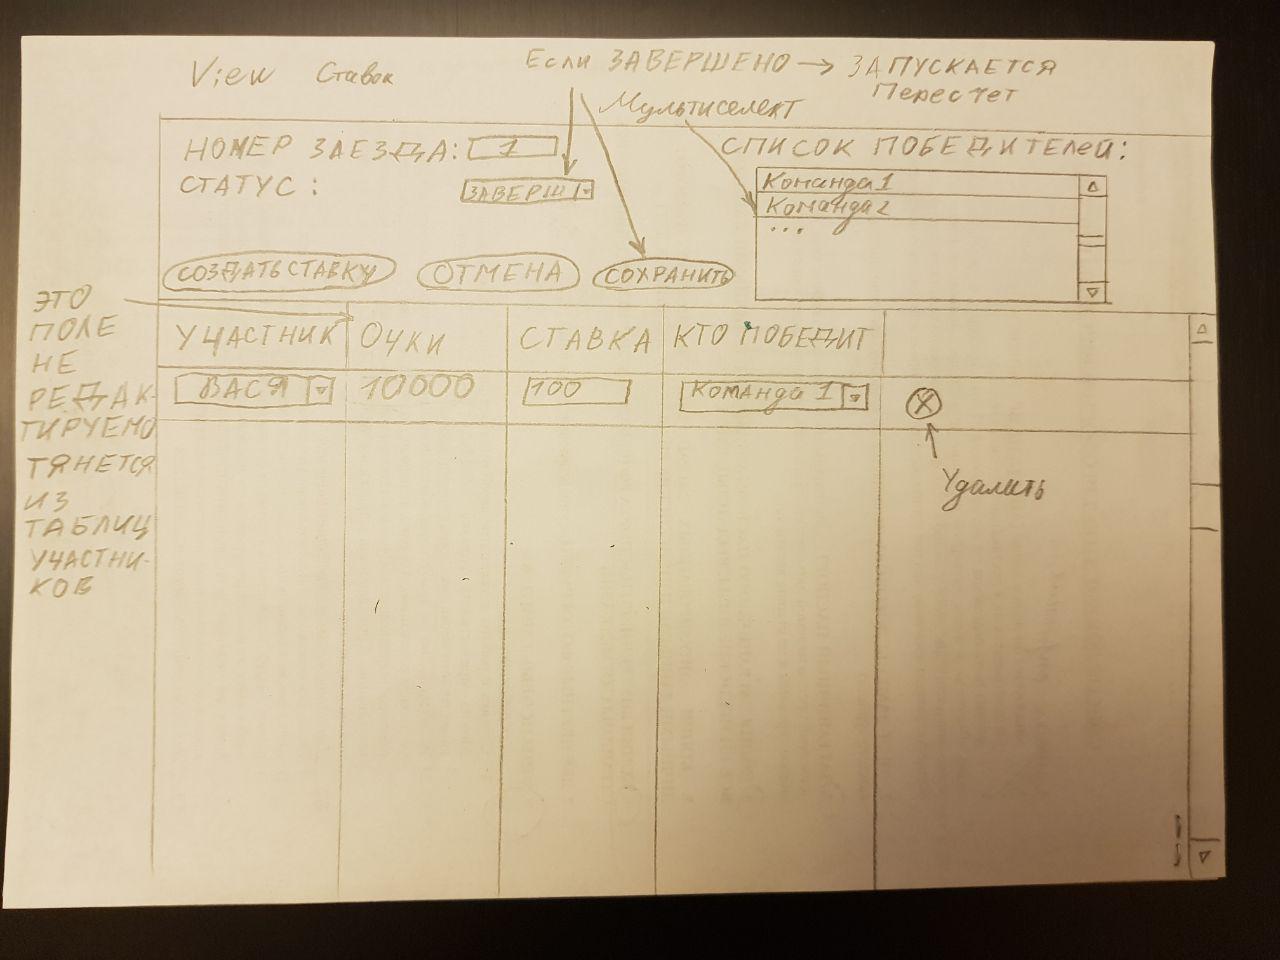 View Ставок
Если ЗАВЕРШЕНО → ЗАПУСКАЕТСЯ
Пересчет
Мультиселект
НОМЕР ЗАЕЗДА: 1
СТАТУС: ЗАВЕРШ
СПИСОК ПОБЕДИТЕЛей:
Команда 1
Команда 2
...
СОЗДАТЬ СТАВКУ ОТМЕНА СОХРАНИТЬ
ЭТО
ПОЛЕ
НЕ
РЕДАК-
ТИРУЕМО
ТЯНЕТСЯ
ИЗ
ТАБЛИЦ
УЧАСТНИ-
КОВ
УЧАСТНИК ОЧКИ СТАВКА КТО ПОБЕДИТ
ВАСЯ 10000 100 Команда 1 X
Удалить